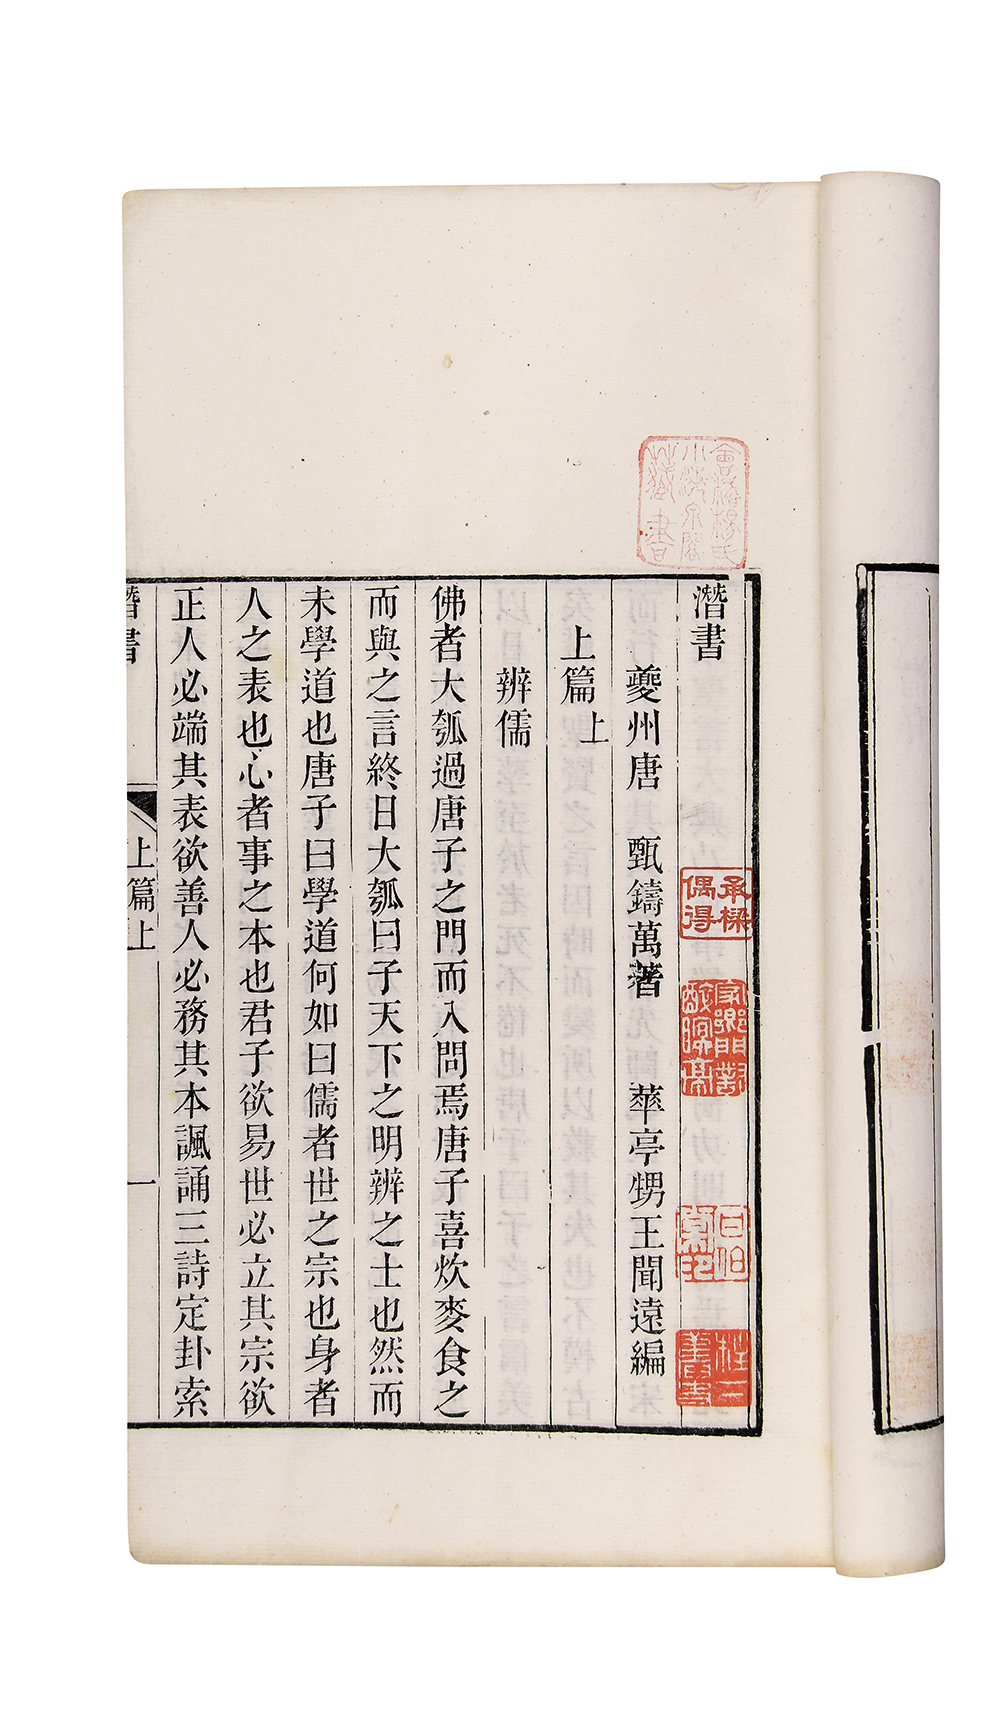 潛書
夔州唐　甄鑄萬著　蕐亭甥王聞遠編
上篇上
辨儒
佛者大瓠過唐子之門而入問焉唐子喜炊麥食之
而與之言終日大瓠曰子天下之明辨之士也然而
未學道也唐子曰學道何如曰儒者世之宗也身者
人之表也心者事之本也君子欲易世必立其宗欲
正人必端其表欲善人必務其本諷誦三詩定卦索
潛書
上篇上
一
藏書
承樑
偶得